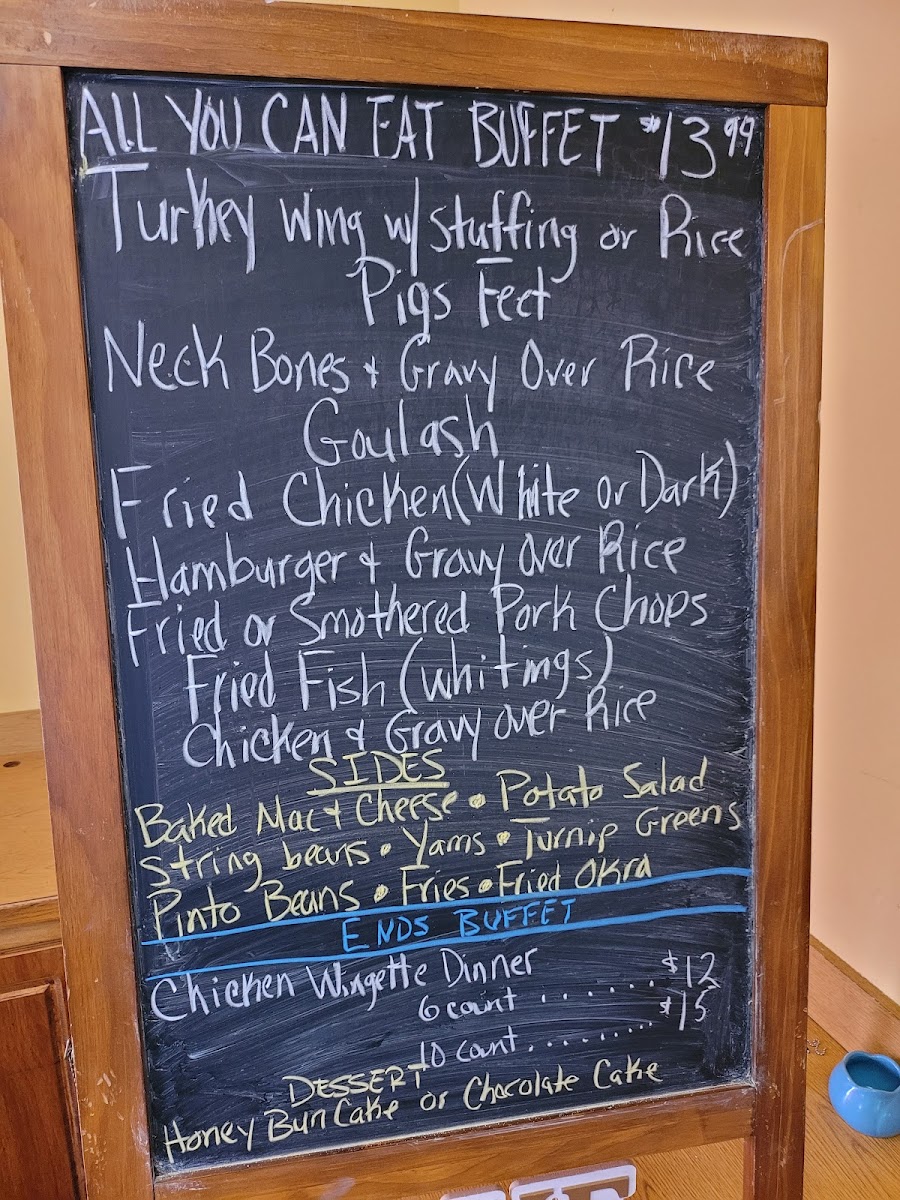 ALL YOU CAN EAT BUFFET $13.99
Turkey Wing w/ stuffing or Rice
Pigs Feet
Neck Bones + Gravy Over Rice
Goulash
Fried Chicken (White or Dark)
Hamburger + Gravy Over Rice
Fried or Smothered Pork Chops
Fried Fish (Whitings)
Chicken & Gravy over Rice
SIDES
Baked Mac + Cheese • Potato Salad
String beans • Yams • Turnip Greens
Pinto Beans • Fries • Fried Okra
ENDS BUFFET
Chicken Wingette Dinner
6 count ....... $12
10 count ........ $15
DESSERT
Honey Bun Cake or Chocolate Cake